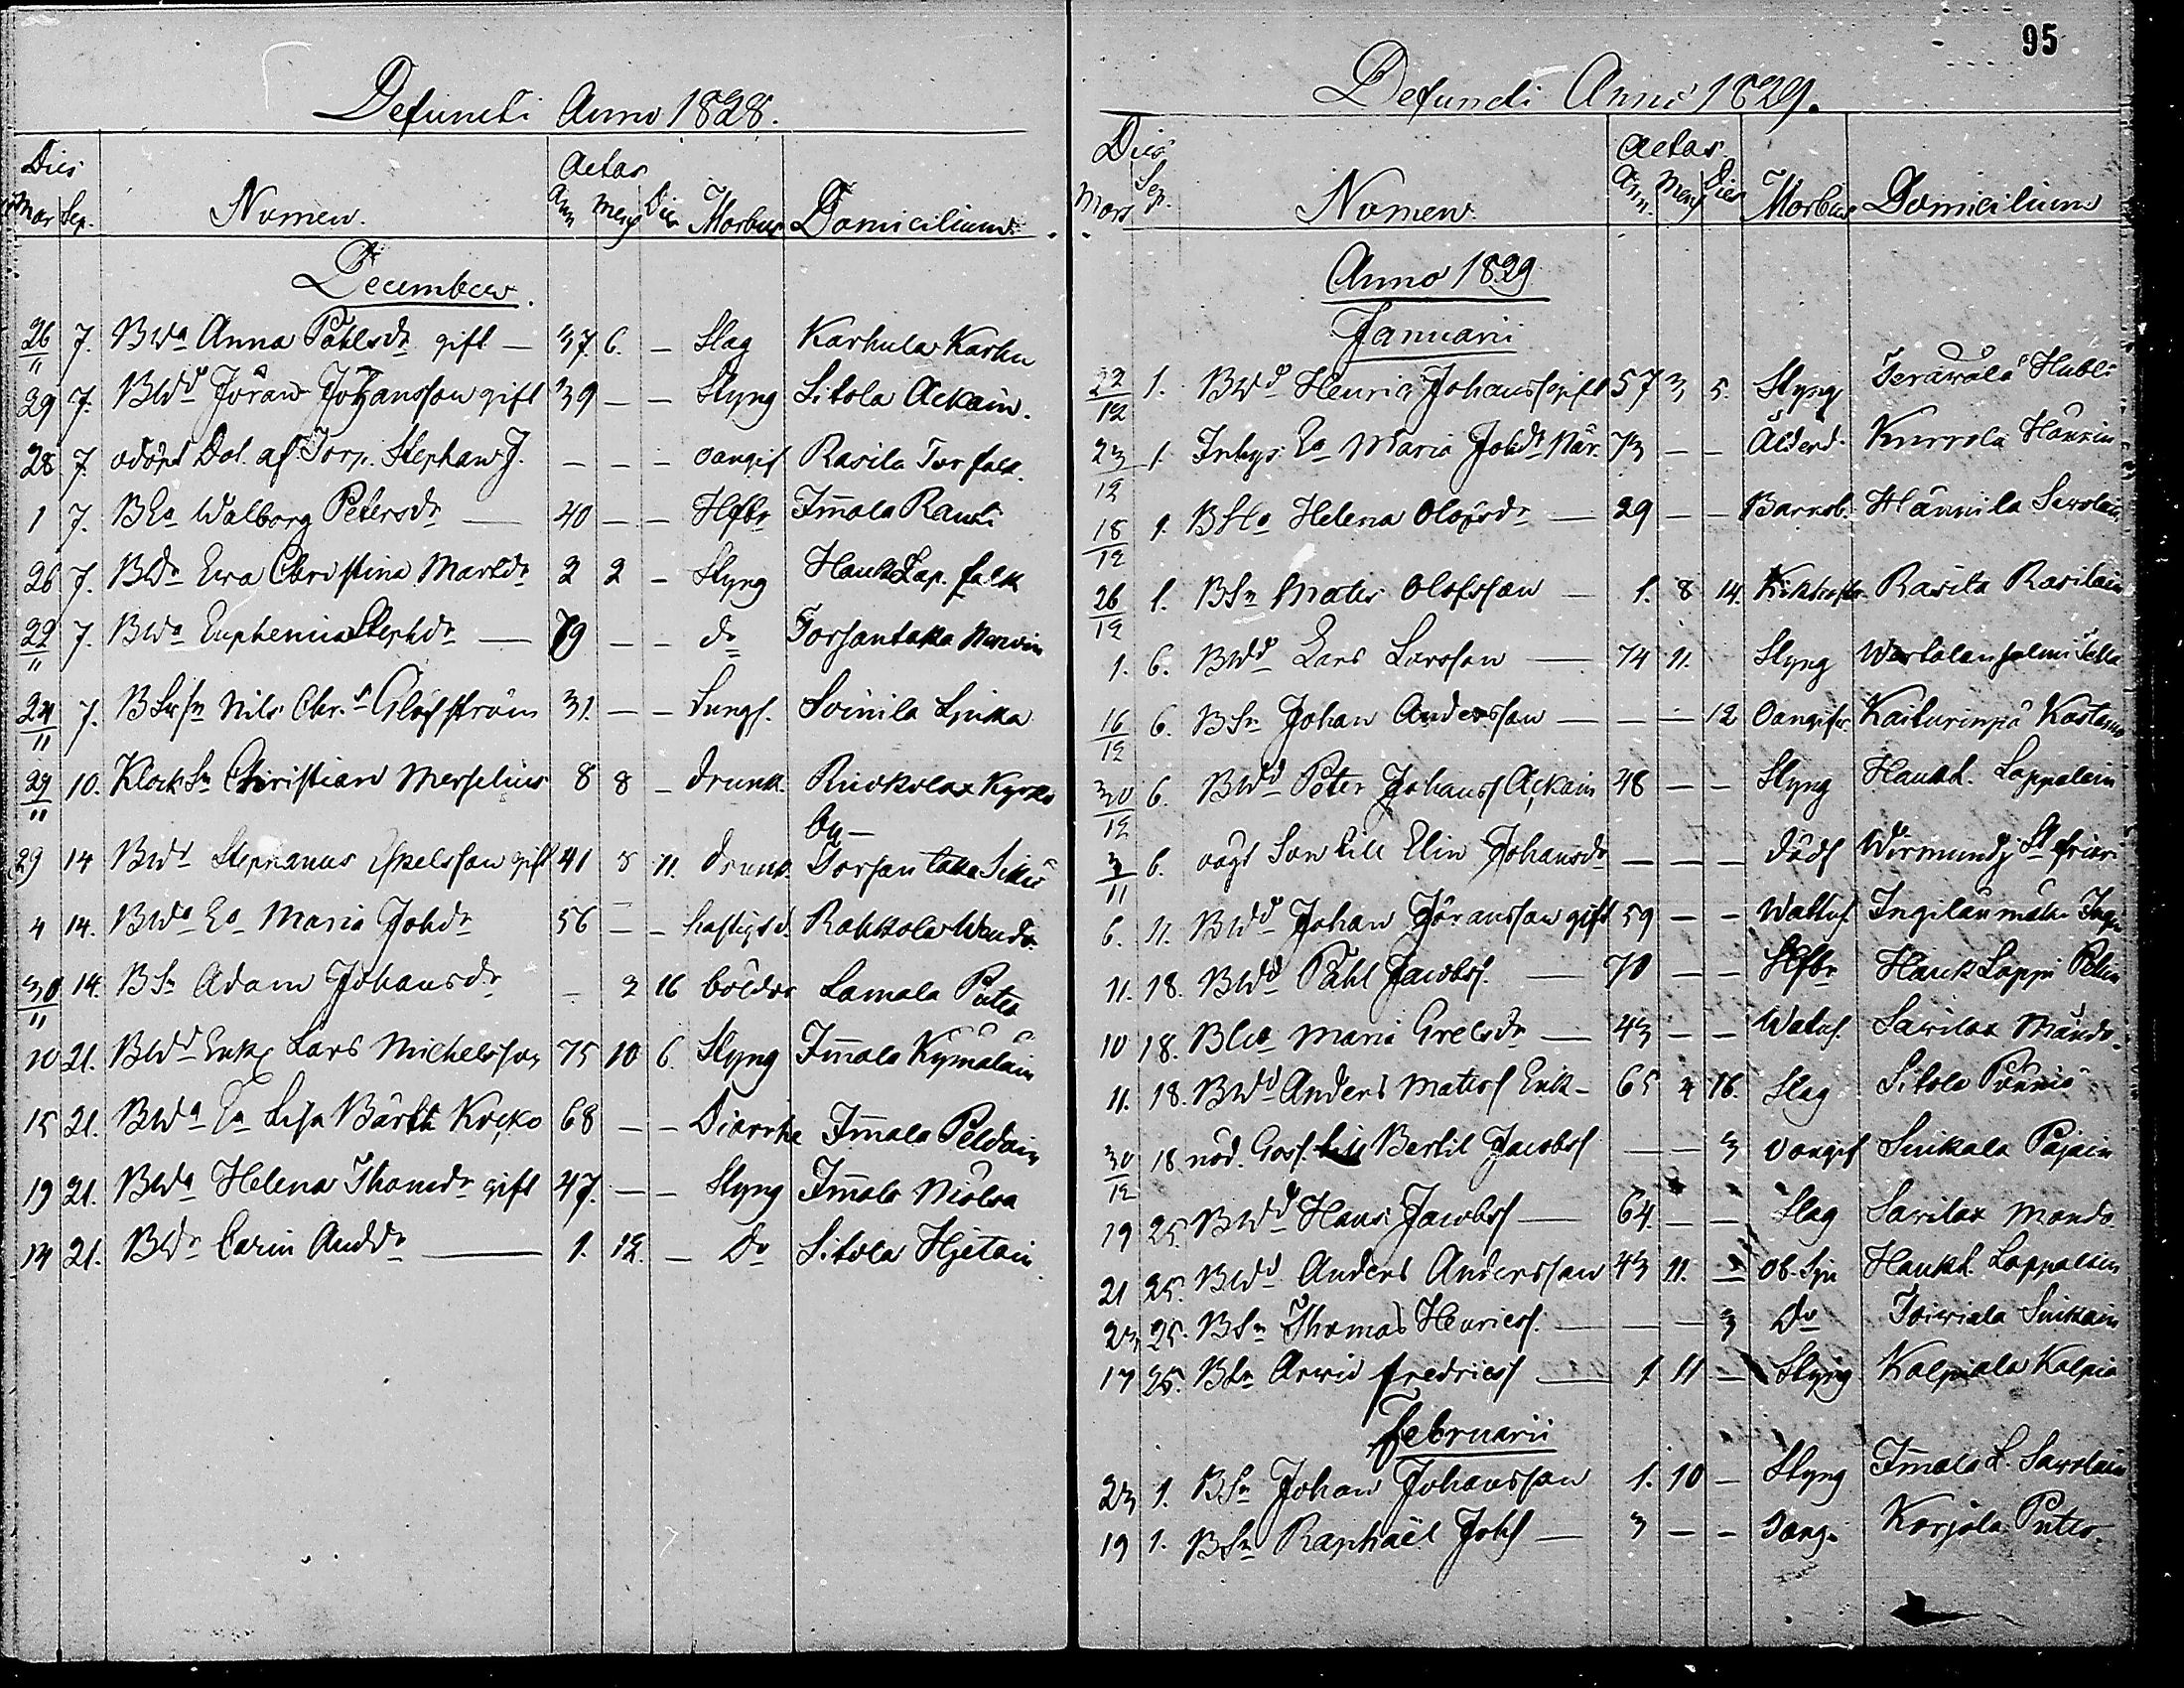 95
Defuncti Anno 1828.
Dies Aetas
Mor Sep. Nomen. Ann mens Dies Morbus Domicilium
December
26/11 7. BWa Anna Påhlsdr gift — 37. 6. — Slag Karhula Karhu
29 7. BWd Jöran Johansson gift 39 — — Styng Sitola Ackain.
28 7. odöpt Dot. af Torp. Stephan J. — — — oangif Rasila Torfalk.
1 7. BEa Walborg Petersdr — 40 — — Hfbr Imala Rauti
26 7. BDr Ewa Christina Marldr 2 2 — Styng Hauk Lap. falk
22/11 7. BWa Euphemia Stephdr — 79 — — do Torsantaka
24/11 7. Nils Chr. Glöfström 31. — — Lungs. Soinila Ljuka
29/11 10. Klock Sn Christian Merselius 8 8 — drunk. Ruokolax Kyrko
by —
29 14 BWd Stephanus gift 41 8 11. drunk. Torsantaka
4 14. BWa Ea Maria Johdr 56 — — hastigt d. Rahkola
30/11 14. BSn Adam Johansdr — 2 16 böldor Lamala Puter
10 21. BWd Enkl Lars Michelsson 75 10 6. Styng Imala Kymäläin
15 21. BWa Ea Lisa Bärtr Kocko 68 — — Diarrhe Imala Peldain
19 21. BWa Helena Thomdr gift 47. — — Styng Imala Mölsa
14 21. BDr Carin Anddr — 1. 12. — Do Sitola Hjetain
Defuncti Anno 1829.
Dies Aetas
Mors Sep. Nomen Ann. Mens Dies Morbus Domicilium
Anno 1829
Januarii
22/12 1. BWd Henric Johanss gift 57 3 5. Styng Teräwälä Hubli
23/12 1. Inhys: Ea Maria Johdr När. 73 — — Ålderd. Kurrola
18/12 1. Helena Olofsdr — 29 — — Barnsb. Hännilä Sawolain
26/12 1. BSn Mats Olofsson — 1. 8 14. Kikhosta Rasila Rasilain
1. 6. BWd Lars Larsson — 74 11. Styng
16/12 6. BSn Johan Andersson — — — 12 Oangifv. Kaiturinpä
30/12 6. BWd Peter Johanss Ackain 48 — — Styng Haukl. Lappalain
3/11 6. oägt Son till Elin Johansdr — — — dödf
6. 11. BWd Johan Jöransson gift 59 — — Wattus. Ingilänmäki
11. 18. BWd Påhl Jacobss. — 70 — — Hfbr Hauk Lappi
10 18. Maria Grelsdr — 43 — — Watus. Sarilax
11. 18. BWd Anders Matss Enk — 65 4 16. Slag Sitola Pönniö
30/12 18 nöd. Goss. Bertil Jacobss — — 3 oangif Sinkala Pajain
19 25. BWd Hans Jacobss — 64 — — Slag Sarilax
21 25. BWd Anders Andersson 43 11. — Ob. Sju Haukl. Lappalain
23 25. BSn Thomas Henricss. — — — 3 Do Toiviala Sinkain
17 25. BSn Arwid Fredricss — 1 11 — Styng Kalpiala Kalpio
Februarii
23 1. BSn Johan Johansson 1. 10 — Styng Imala L. Sawolain
19 1. BSn Raphaël Johss — 3 — — Korjola Puter